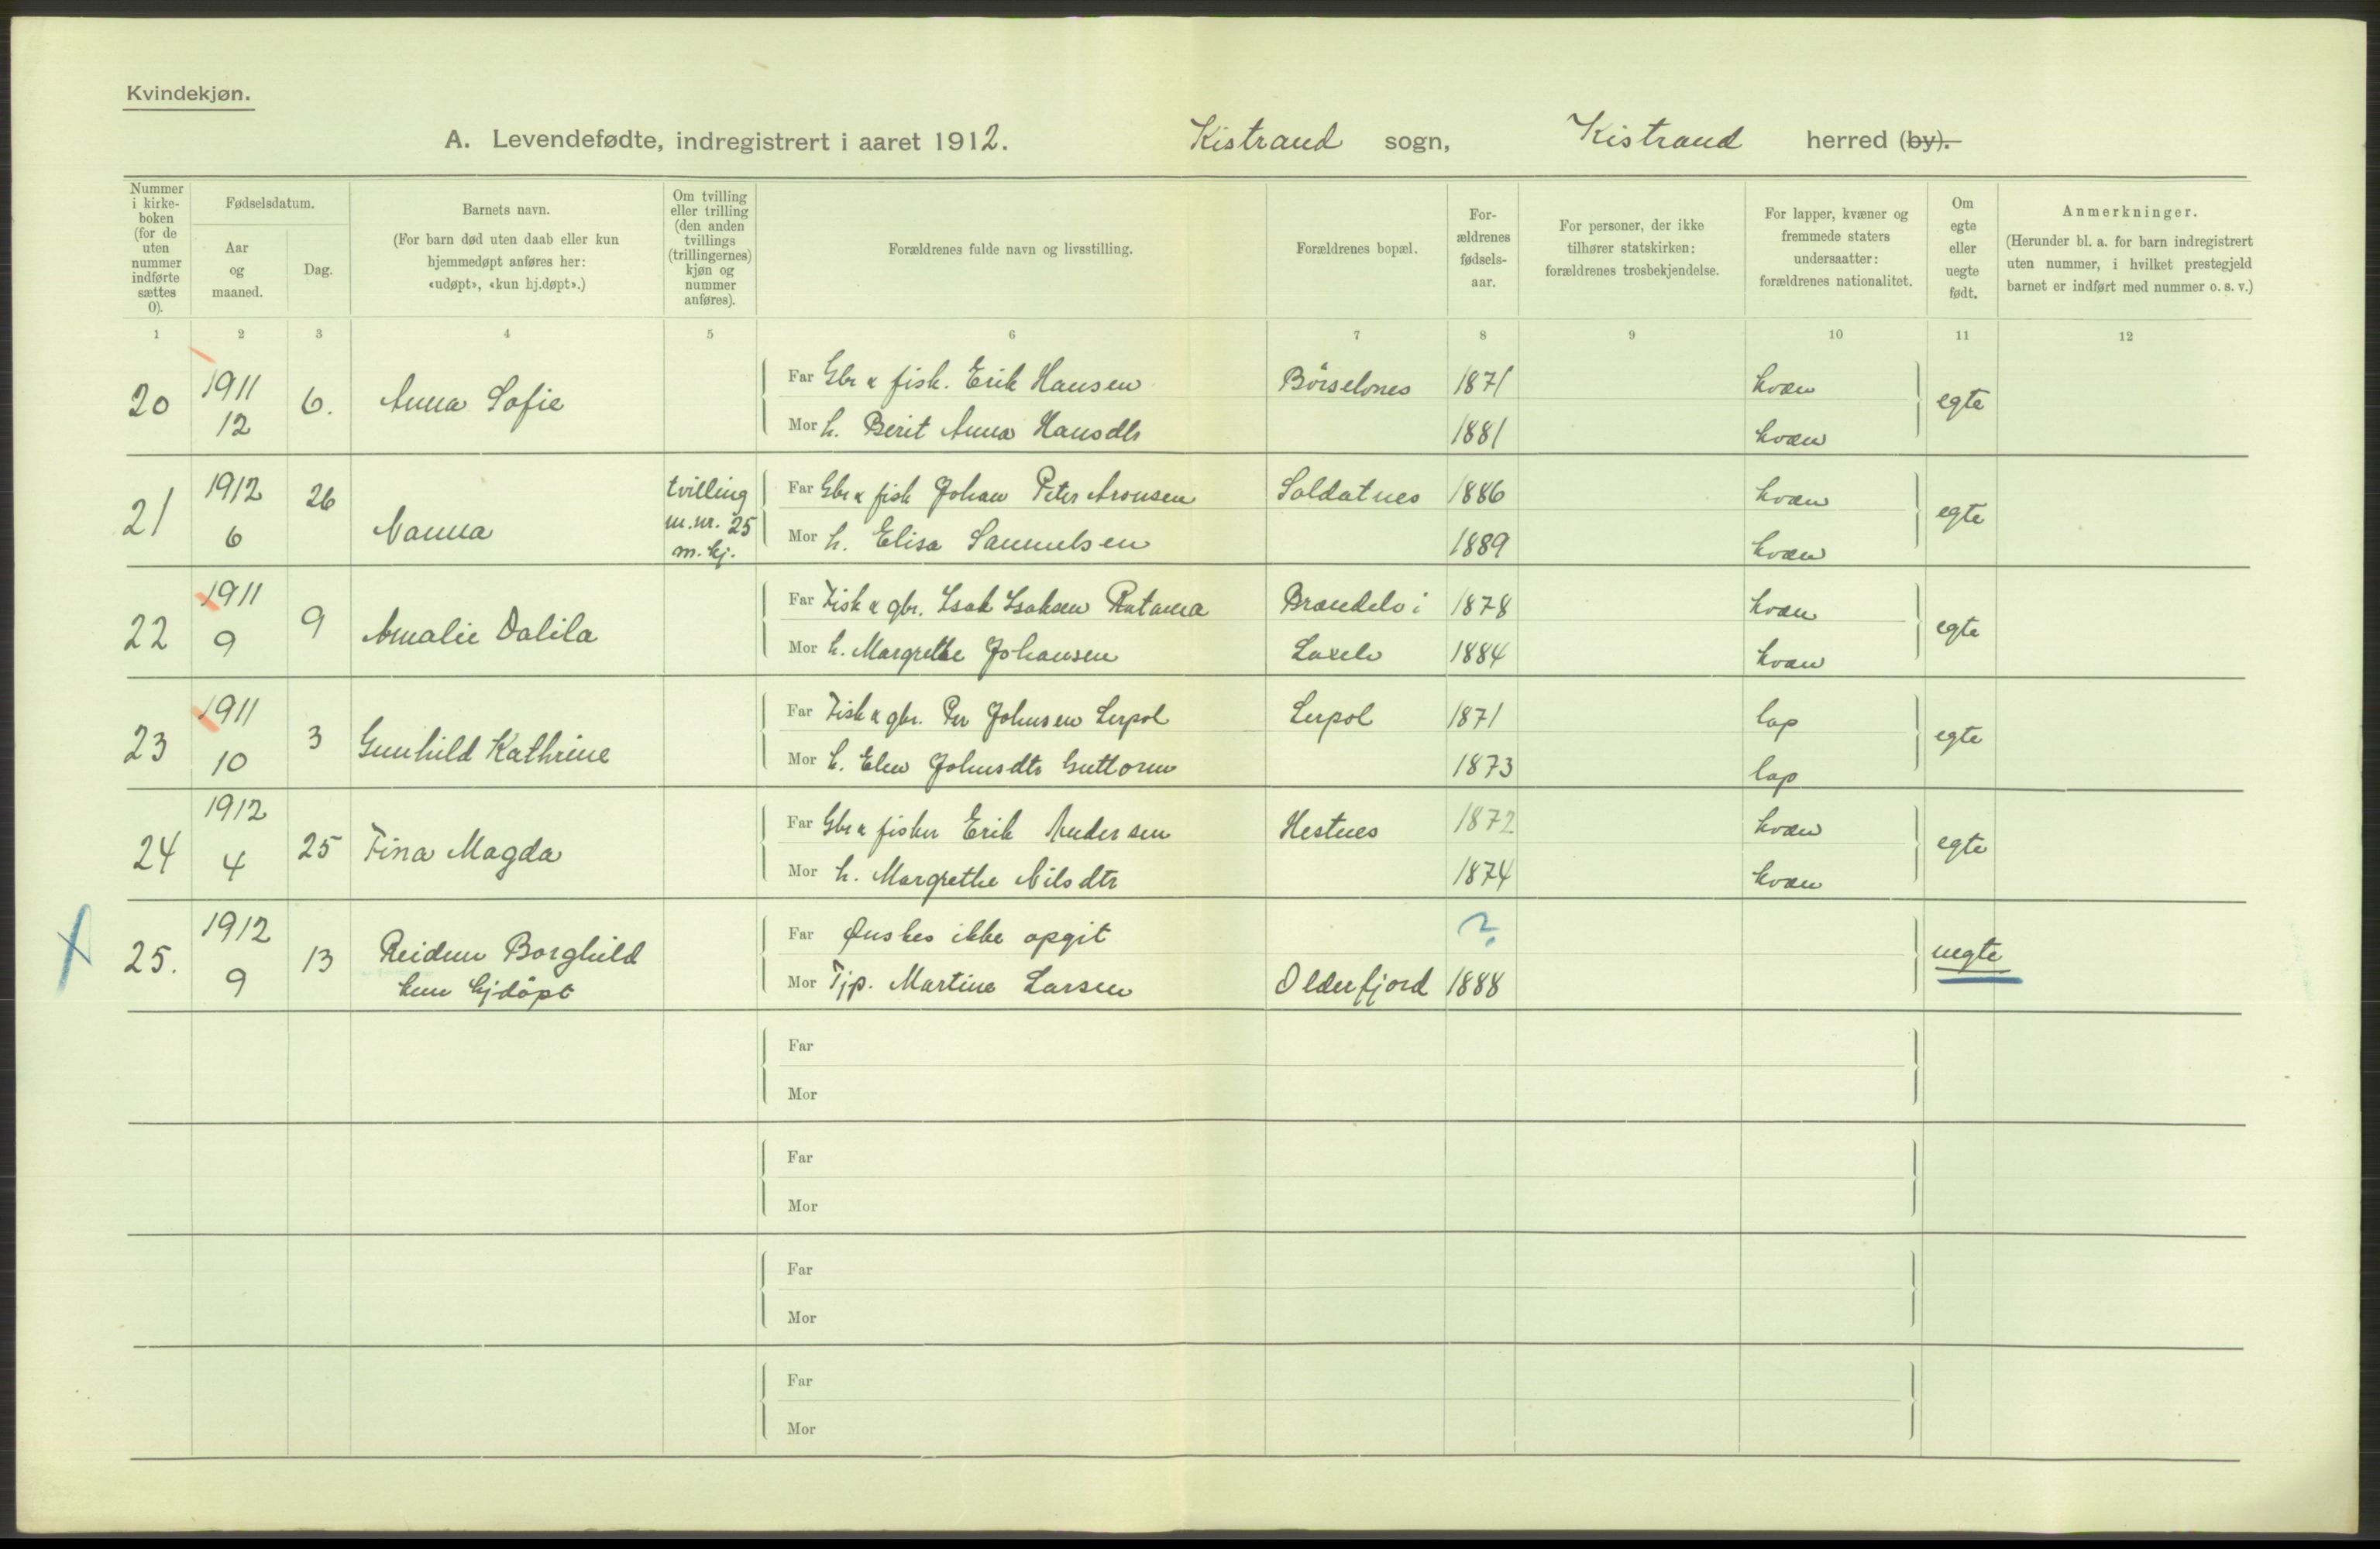 Kvindekjøn.
A. Levendefødte, indregistrert i aaret 1912. Kistrand sogn, Kistrand herred (by).
Nummer i kirke-boken (for de uten nummer indførte sættes 0).
Fødselsdatum.
Aar og maaned.
Dag.
Barnets navn.
(For barn død uten daab eller kun hjemmedøpt anføres her: «udøpt», «kun hj.døpt».)
Om tvilling eller trilling (den anden tvillings (trillingernes) kjøn og nummer anføres).
Forældrenes fulde navn og livsstilling.
Forældrenes bopæl.
For-ældrenes fødsels-aar.
For personer, der ikke tilhører statskirken: forældrenes trosbekjendelse.
For lapper, kvæner og fremmede staters undersaatter: forældrenes nationalitet.
Om egte eller uegte født.
Anmerkninger.
(Herunder bl. a. for barn indregistrert uten nummer, i hvilket prestegjeld barnet er indført med nummer o. s. v.)
1 2 3 4 5 6 7 8 9 10 11 12
20 1911 12 6. Anna Sofie
Far Gbr & fisk. Erik Hansen Börselvnes 1871 kvæn egte
Mor h. Berit Anna Hansdtr 1881 kvæn
21 1912 6 26 Nanna tvilling m.nr. 25 m.kj.
Far Gbr & fisk Johan Peter Aronsen Soldatnes 1886 kvæn egte
Mor h. Elisa Samuelsen 1889 kvæn
22 1911 9 9 Amalie Dalila
Far Fisk & gbr. Isak Isaksen Ratama Brændelv i 1878 kvæn egte
Mor h. Margrethe Johansen Laxelv 1884 kvæn
23 1911 10 3 Gunhild Kathrine
Far Fisk & gbr. Per Johnsen Lerpol Lerpol 1871 lap egte
Mor h. Elen Johnsdtr Guttorm 1873 lap
24 1912 4 25 Fina Magda
Far Gbr & fisker Erik Andersen Hestnes 1872 kvæn egte
Mor h. Margrethe Nilsdtr 1874 kvæn
25. 1912 9 13 Reidun Borghild kun hjdöpt
Far Ønskes ikke opgit ? uegte
Mor Tjp. Martine Larsen Olderfjord 1888
Far
Mor
Far
Mor
Far
Mor
Far
Mor